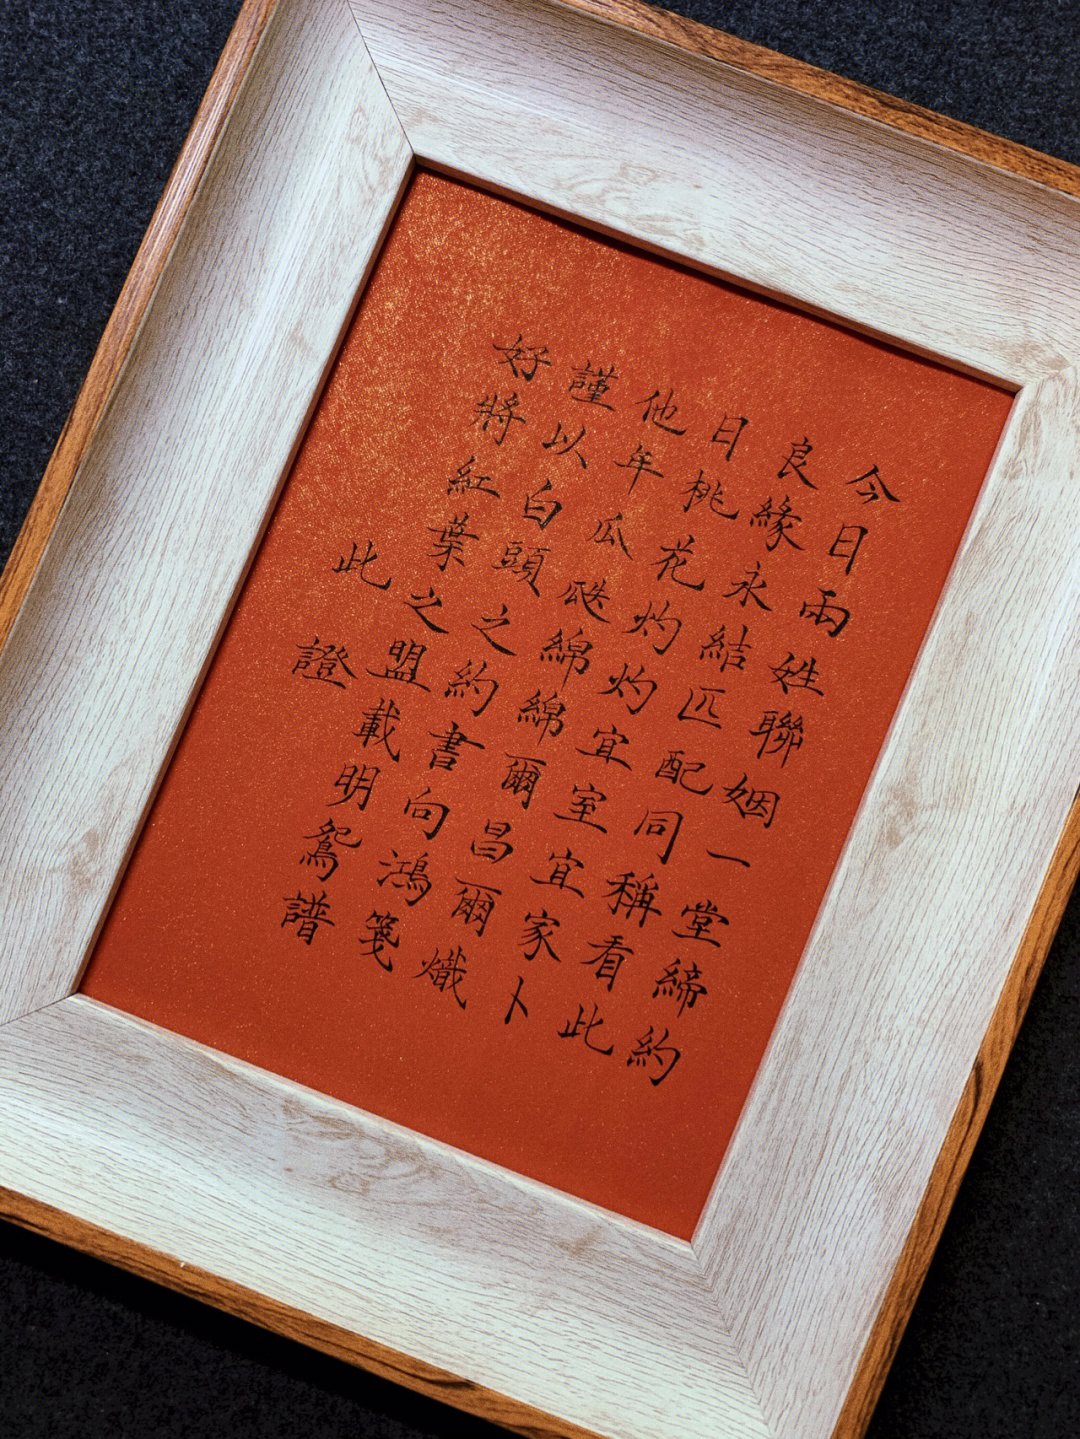 今日兩姓聯姻一堂締約
良緣永結匹配同稱看此
日桃花灼灼宜室宜家卜
他年瓜瓞綿綿爾昌爾熾
謹以白頭之約書向鴻箋
好將紅葉之盟載明鴛譜
此證